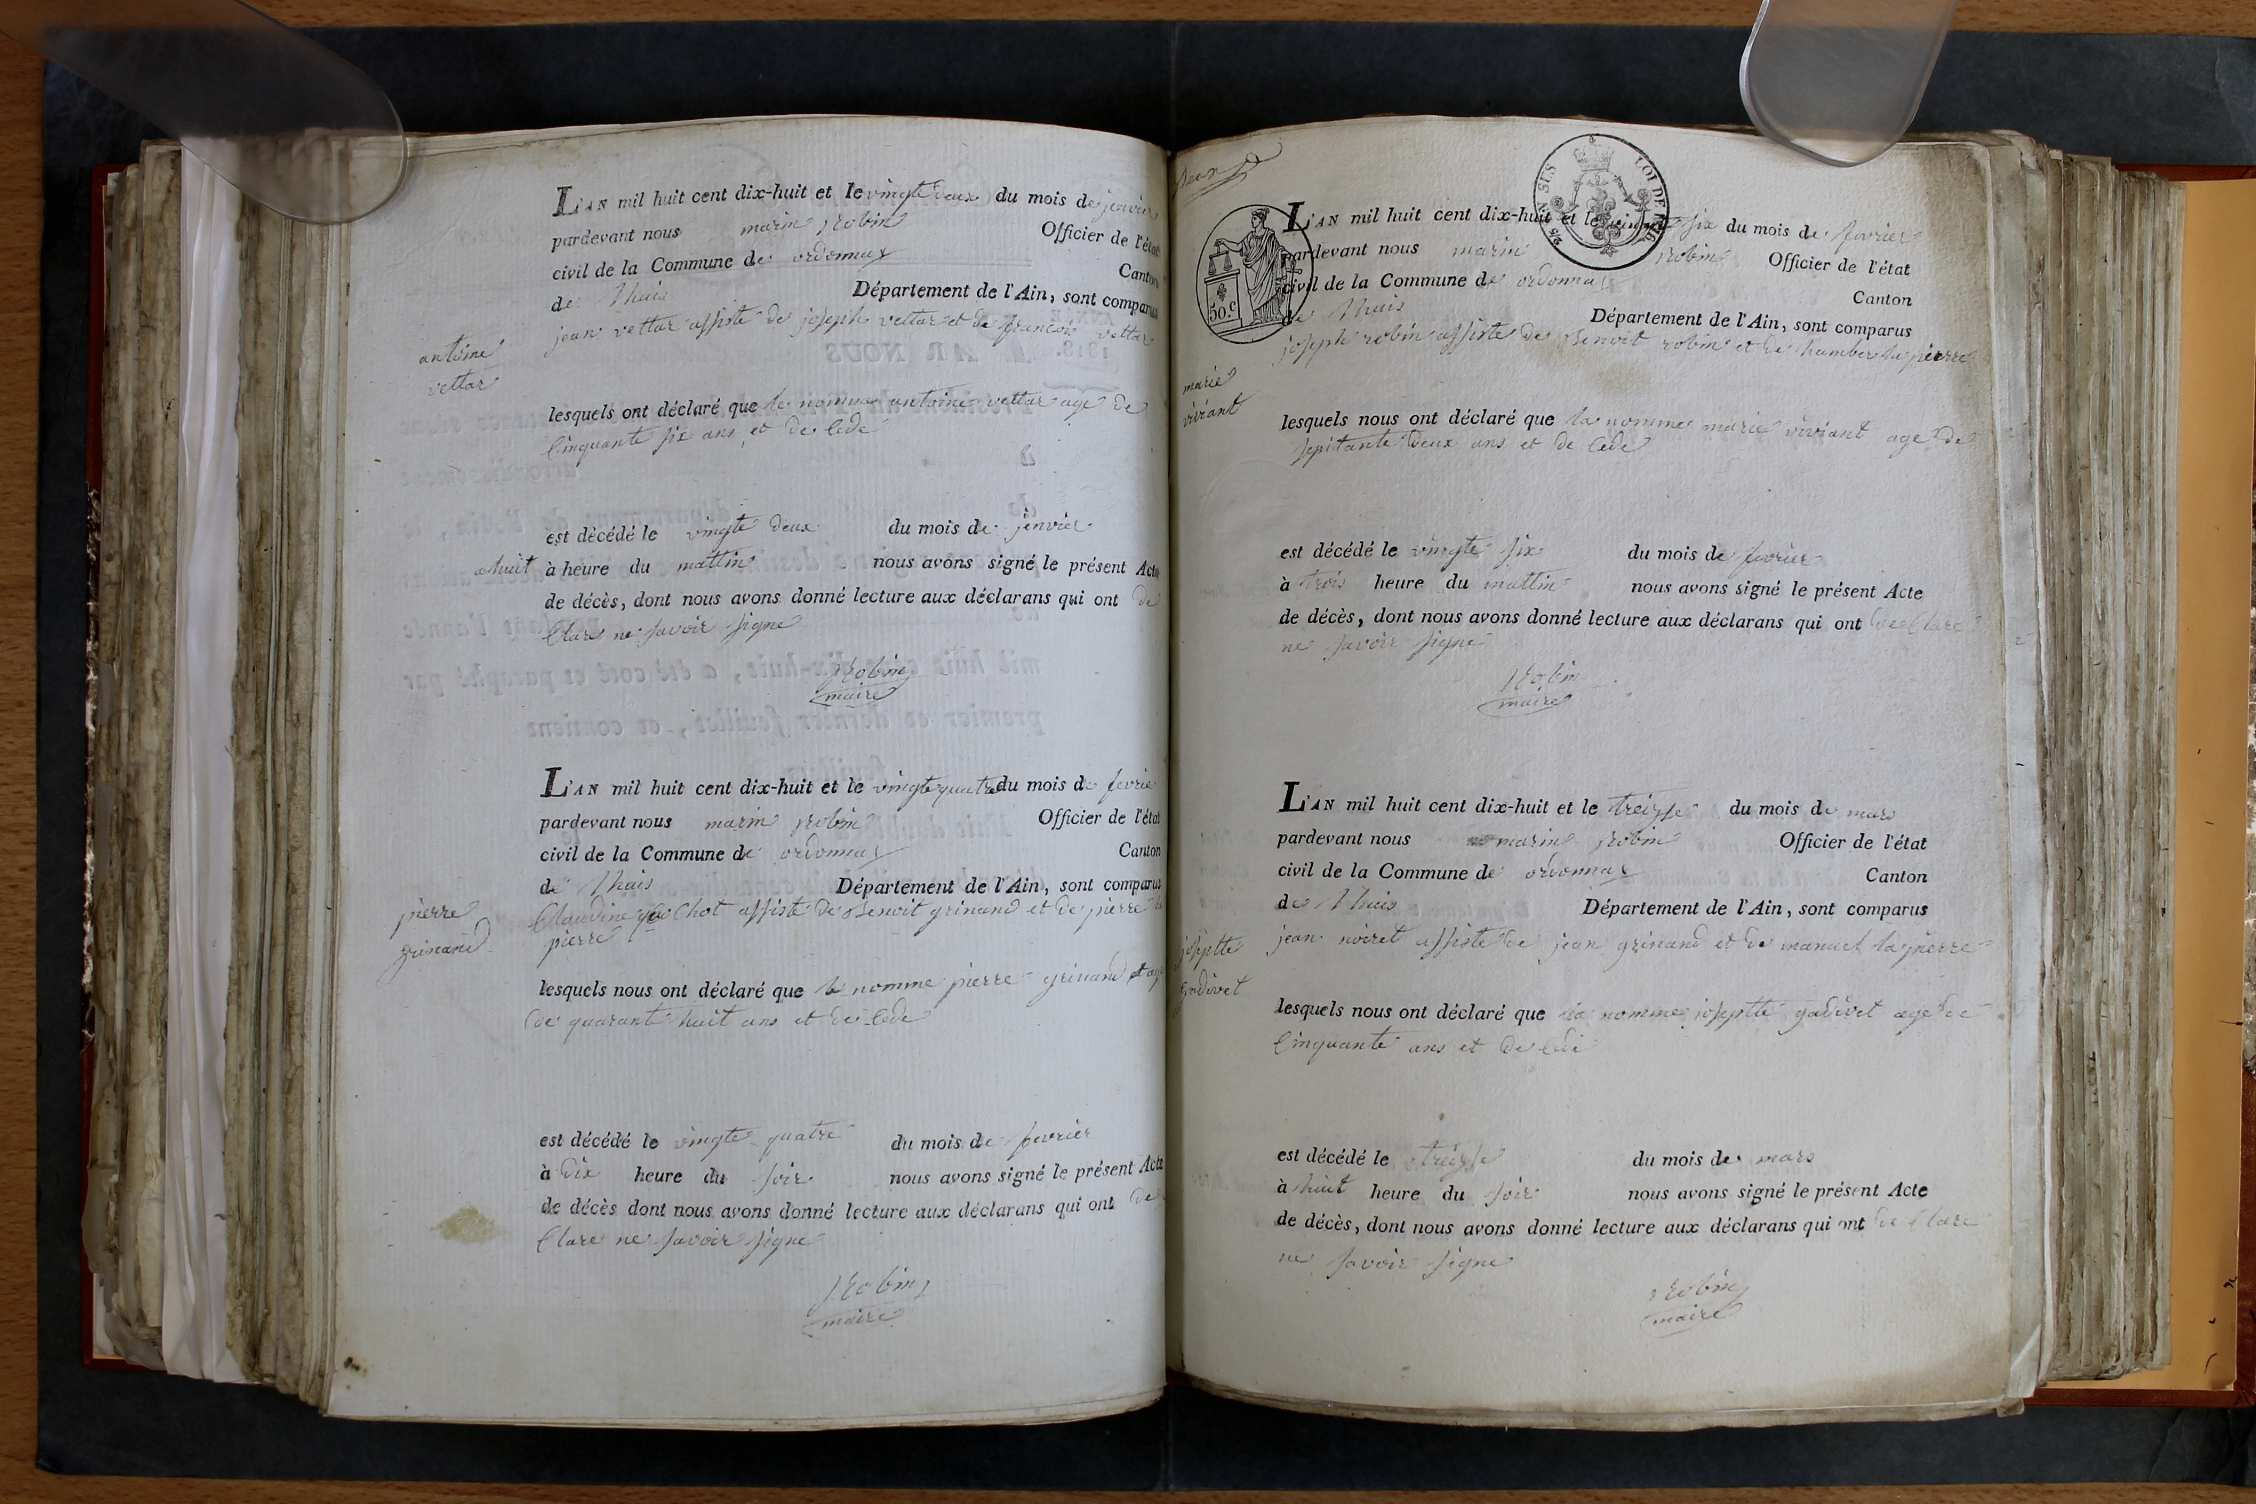 L'AN mil huit cent dix-huit et le vingte deux du mois de jenvier
pardevant nous marin robin Officier de l'état
civil de la Commune de ordonnax Canton
de thais Département de l'Ain, sont comparus
jean vettar assiste de joseph vettar et de francois vettar
antoine
vettar
lesquels ont déclaré que le nomme antoine vettar age de
Cinquante six ans et de Cede
est décédé le vingte deux du mois de jenvier
ahuit à heure du mattin nous avons signé le présent Acte
de décès, dont nous avons donné lecture aux déclarans qui ont de
Clare ne savoir signe
Robin
maire
L'AN mil huit cent dix-huit et le vingte quatre du mois de fevrie
pardevant nous marin robin Officier de l'état
civil de la Commune de ordonnax Canton
de thais Département de l'Ain, sont comparus
Claudine Chot assiste de Benoit grinand et de pierre la
pierre
pierre
grinand
lesquels nous ont déclaré que le nomme pierre grinand age
de quarante huit ans et de Cede
est décédé le vingte quatre du mois de fevrier
à dix heure du soir nous avons signé le présent Acte
de décès dont nous avons donné lecture aux déclarans qui ont de
Clare ne savoir signe
Robin
maire
deux
SUS LOI DE
50.c
L'AN mil huit cent dix-huit et le vingte six du mois de fevrier
pardevant nous marin robin Officier de l'état
civil de la Commune de ordonnax Canton
de thais Département de l'Ain, sont comparus
joseph robin assiste de Benoit robin et de humber la pierre
marie
viviant
lesquels nous ont déclaré que la nomme marie viviant age de
sepitante deux ans et de Cede
est décédé le vingte six du mois de fevrier
à trois heure du mattin nous avons signé le présent Acte
de décès, dont nous avons donné lecture aux déclarans qui ont de Clare
ne savoir signe
Robin
maire
L'AN mil huit cent dix-huit et le treizse du mois de mars
pardevant nous marin robin Officier de l'état
civil de la Commune de ordonnax Canton
de thais Département de l'Ain, sont comparus
jean noiret assiste de jean grinand et de manuel la pierre
joseptte
gadivet
lesquels nous ont déclaré que la nomme joseptte gadivet age de
Cinquante ans et de Cede
est décédé le treizse du mois de mars
à huit heure du soir nous avons signé le présent Acte
de décès, dont nous avons donné lecture aux déclarans qui ont de Clare
ne savoir signe
Robin
maire